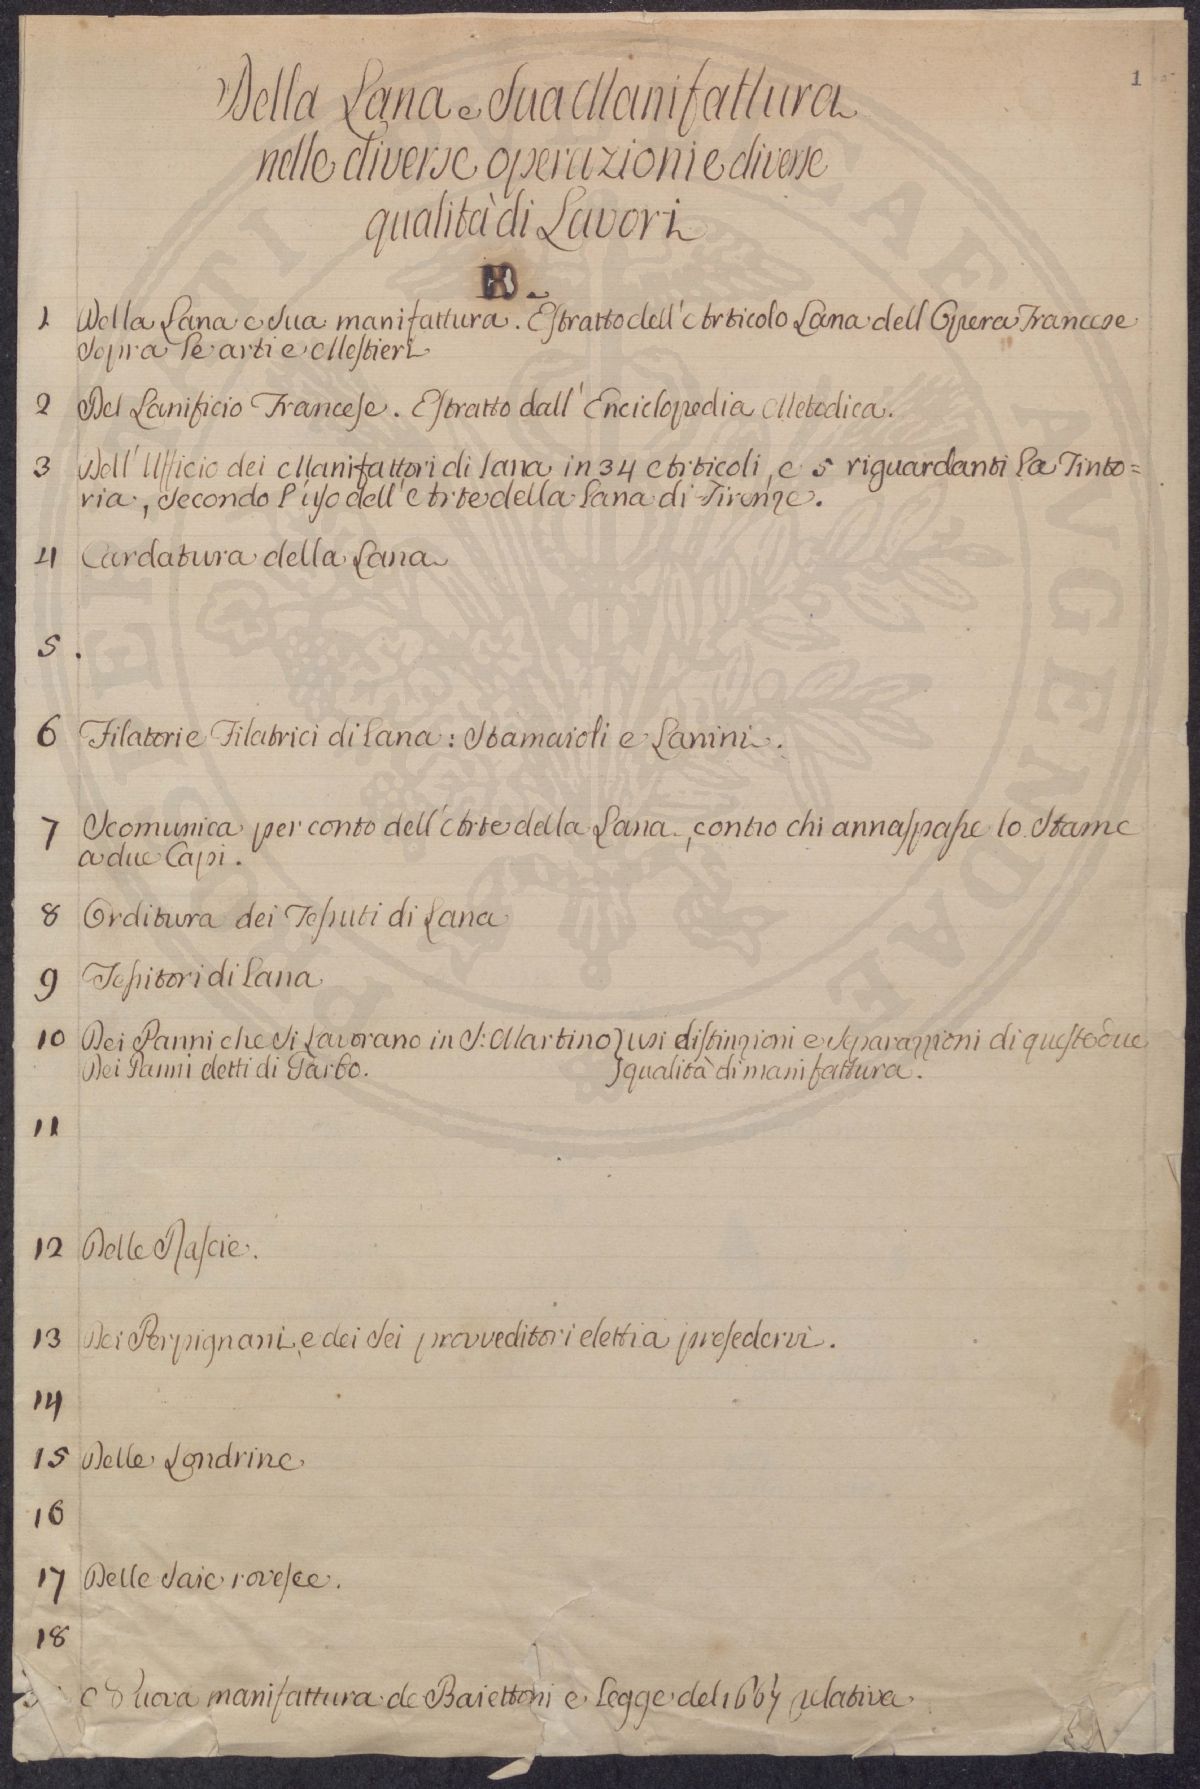 1
Della Lana e Sua Manifattura
nelle diverse operazioni e diverse
qualità di Lavori
1 Della Lana e Sua manifattura. Estratto dell'Articolo Lana dell Opera Francese
Sopra le arti e Mestieri
2 Del Lanificio Francese. Estratto dall'Enciclopedia Metodica.
3 Dell'Ufficio dei Manifattori di lana in 34 Articoli, e 5 riguardanti la Tinto=
ria, Secondo l'uso dell'Arte della Lana di Firenze.
4 Cardatura della Lana
5 .
6 Filatori e Filatrici di lana: Stamaioli e Lanini.
7 Scomunica per conto dell'Arte della Lana, contro chi annaspasse lo Stame
a due Capi.
8 Orditura dei Tessuti di Lana
9 Tessitori di Lana
10 Dei Panni che Si Lavorano in S: Martino } usi distinzioni e Separazzioni di queste due
Dei Panni detti di Garbo. } qualità di manifattura.
11
12 Delle Rascie.
13 Dei Perpignani, e dei Sei provveditori eletti a presedervi.
14
15 Delle Londrine
16
17 Delle Saie rovesce.
18
Nuova manifattura de Baiettoni e Legge del 1667 relativa
PUBLICAE AUGENDAE